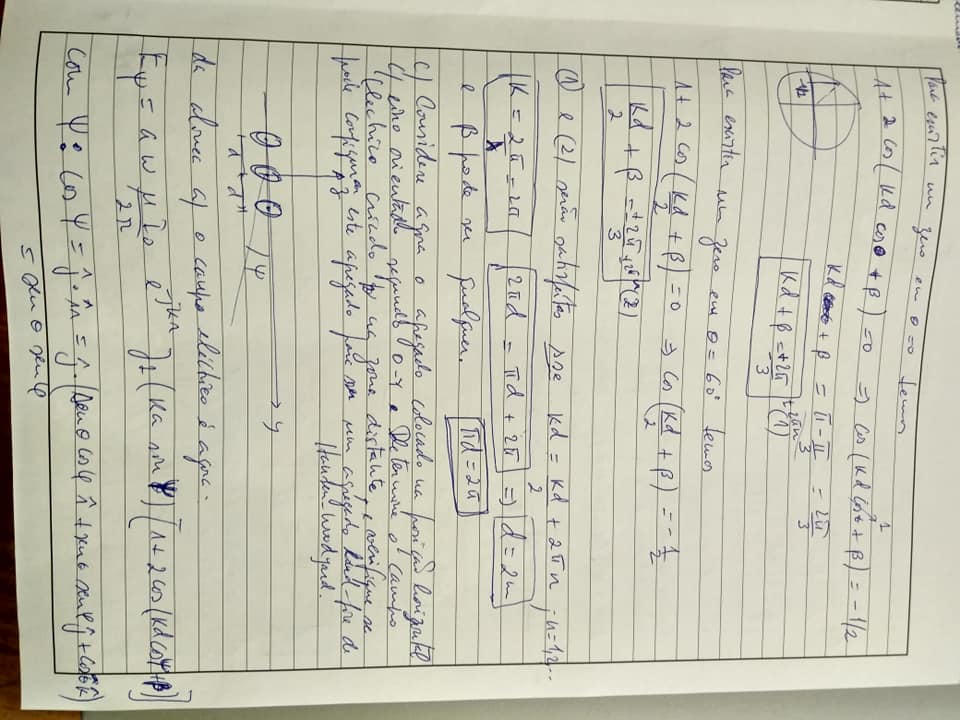 Para existir um zero em θ=0 temos
1+ 2 cos(Kd cosθ + β)=0 ⇒ cos(Kd cosθ + β) = -1/2
1
Kd cosθ + β = π - π/3 = 2π/3
-1/2
Kd + β = ±2π/3 ± 2πn (1)
Para existir um zero em θ = 60° temos
1+ 2 cos(Kd/2 + β)=0 ⇒ cos(Kd/2 + β) = -1/2
Kd/2 + β = ±2π/3 ± 2πn (2)
(1) e (2) serão satisfeitas sse Kd = Kd/2 + 2πn ; n=1,2...
K = 2π/λ = 2π 2πd = πd + 2π ⇒ d = 2m
e β pode ser qualquer. πd = 2π
c) Considere agora o agregado colocado na posição horizontal
c/ eixo orientado segundo O-Y. Determine o campo
Electrico criado na zona distante, e verifique se
pode configurar este agregado para ser um agregado end-fire de
Hansen-Woodyard.
z
y
d d ψ
da alinea a) o campo eléctrico é agora.
Eψ = a ω μ I₀/2r e^-jkr J₁(Ka sin ψ) [1+2cos(Kd cosψ+β)]
com ψ: cos ψ = ĵ·r̂ = ĵ·(senθ cosφ î + senθ senφ ĵ + cosθ k̂)
= senθ senφ